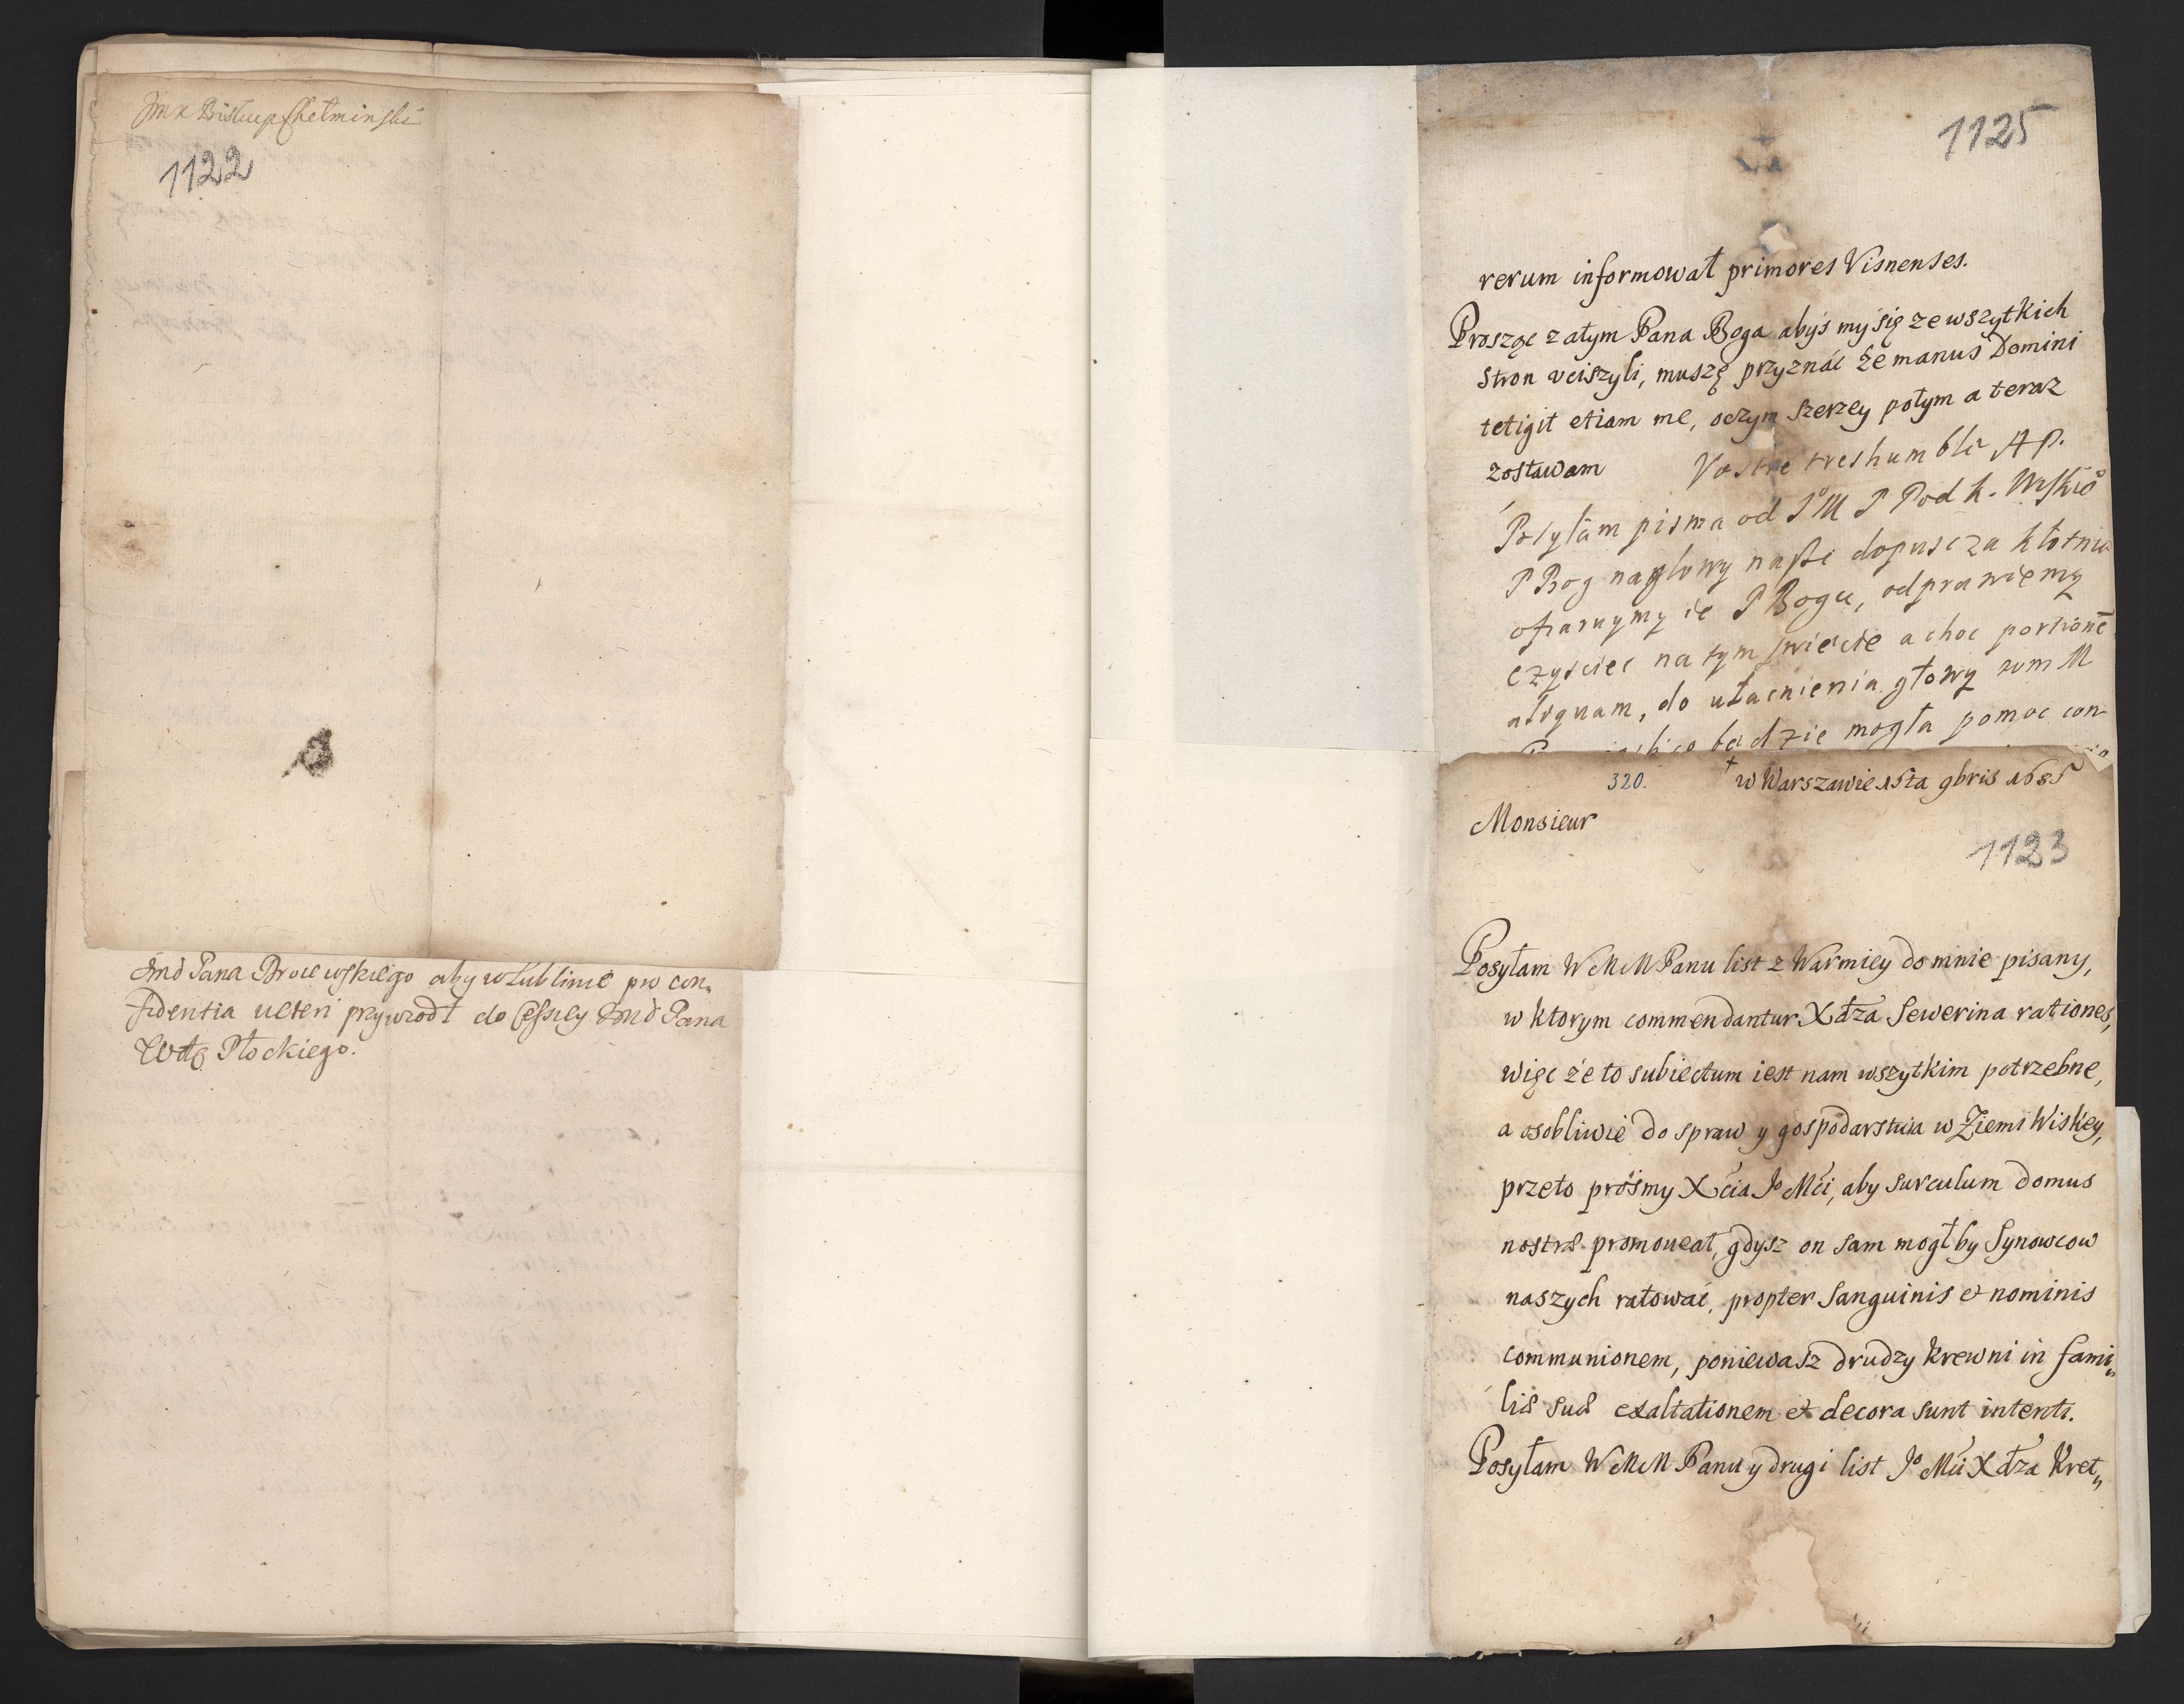 Jmx Biskup Chełminski
1122
Jmć Pana Brolewskiego aby w Lublinie pro con„
fidentia veteri przywiodł do Cessiey Jmć Pana
Wdę Płockiego.
1125
rerum informował primores Visnenses.
Prosząc zatym Pana Boga abyśmy się ze wszytkich
stron ucieszyli, muszę przyznać że manus Domini
tetigit etiam me, oczym szerzey potym a teraz
zostawam Vostre treshumble
Posyłam pisma od
P Bog na głowy nasze dopuszcza kłotnie
ofiaruymy ie P Bogu, odprawiemy
czysciec na tym swiecie a choc portionē
aliquam, do ułacnienia głowy
będzie mogła pomoc con
320. w Warszawie 15ta 9bris 1685
Monsieur
1123
Posyłam W M M Panu list z Warmiey do mnie pisany,
w ktorym commendantur Xdza Sewerina rationes,
więc że to subiectum iest nam wszytkim potrzebne,
a osobliwie do spraw y gospodarstwa w Ziemi Wiskiey,
przeto prośmy Xcia Jo Mći, aby surculum domus
nostræ promoveat, gdysz on sam mogłby Synowcow
naszych ratować, propter sanguinis et nominis
communionem, poniewasz drudzy krewni in fami„
liæ suæ exaltationem et decora sunt intenti.
Posyłam W M M Panu y drugi list Jo Mći Xdza Kret„